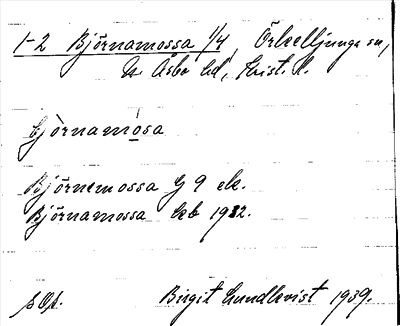 1-2 Björnamossa 1/4, Örkelljunga sn,
N. Åsbo hd, Krist. l.
bjò̀rnamósa
Björnemossa G 9 ek.
Björnamossa Jeb 1932.
Birgit Lundkvist 1939.